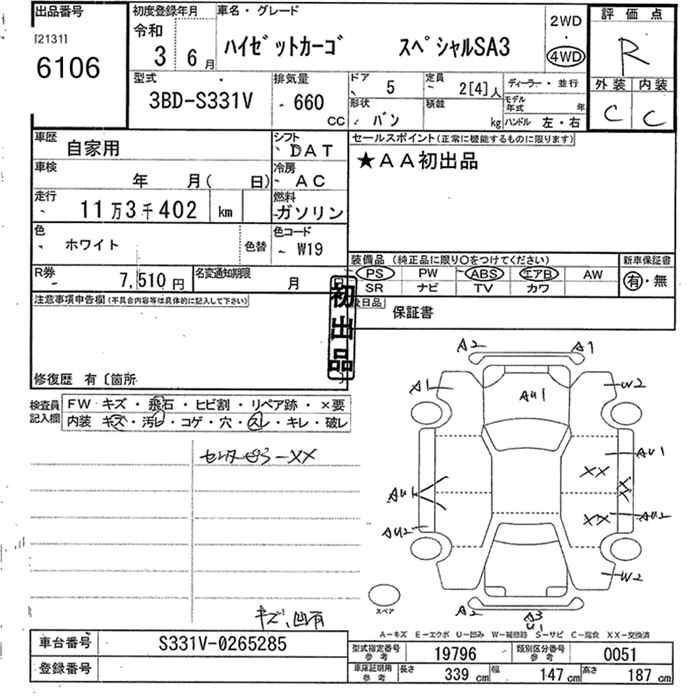 出品番号
[2131]
6106
初度登録年月
令和
3 6月
車名・グレード
ハイゼットカーゴ スペシャルSA3
2WD
・
4WD
評価点
R
外装 内装
C C
型式
3BD-S331V
排気量
660
CC
ドア
5
定員
2[4]人
ディーラー・並行
形状
バン
積載
kg
モデル年式 年
ハンドル 左・右
車歴
自家用
シフト
DAT
車検
年 月( 日)
冷房
AC
走行
11万3千402 km
燃料
ガソリン
色
ホワイト
色替
色コード
W19
R券
7,510円
名変通知期限
月
セールスポイント(正常に機能するものに限ります)
★AA初出品
装備品(純正品に限り○をつけてください)
PS PW ABS エアB AW
SR ナビ TV カワ
新車保証書
有・無
注意事項申告欄(不具合内容等は具体的に記入して下さい)
初出品
後日品
保証書
修復歴 有〔箇所
検査員
記入欄
FW キズ・飛石・ヒビ割・リペア跡・×要
内装 キズ・汚レ・コゲ・穴・スレ・キレ・破レ
センターピラーXX
キズ、凹有
A2 A1
A1 AU1 W2
AU1
XX
XX
AU1
XX AU2
AU2
W2
A2 A3
U1
スペア
A-キズ E-エクボ U-凹み W-補修跡 S-サビ C-腐食 XX-交換済
車台番号
S331V-0265285
登録番号
型式指定番号
参考
19796
類別区分番号
参考
0051
車庫証明用
参考
長さ
339 cm
幅
147 cm
高さ
187 cm